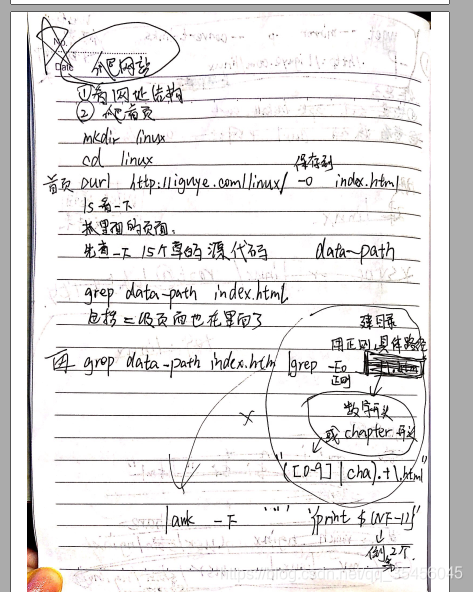 No.
Date
爬网站
①看网址结构
② 爬首页
mkdir linux
cd linux
保存到
首页 curl http://iguye.com/linux/ -o index.html
ls看一下
抓里面的页面,
先看一下 15个章的源代码 data-path
grep data-path index.html
包括二级页面也在里面了
建目录
用正则,具体路径
再 grep data-path index.htm |grep -Eo
正则
数字开头
或 chapter 开头
x
"([0-9]|cha).+\.html"
|awk -F '"' '{print $(NF-1)}'
倒2个
https://blog.csdn.net/